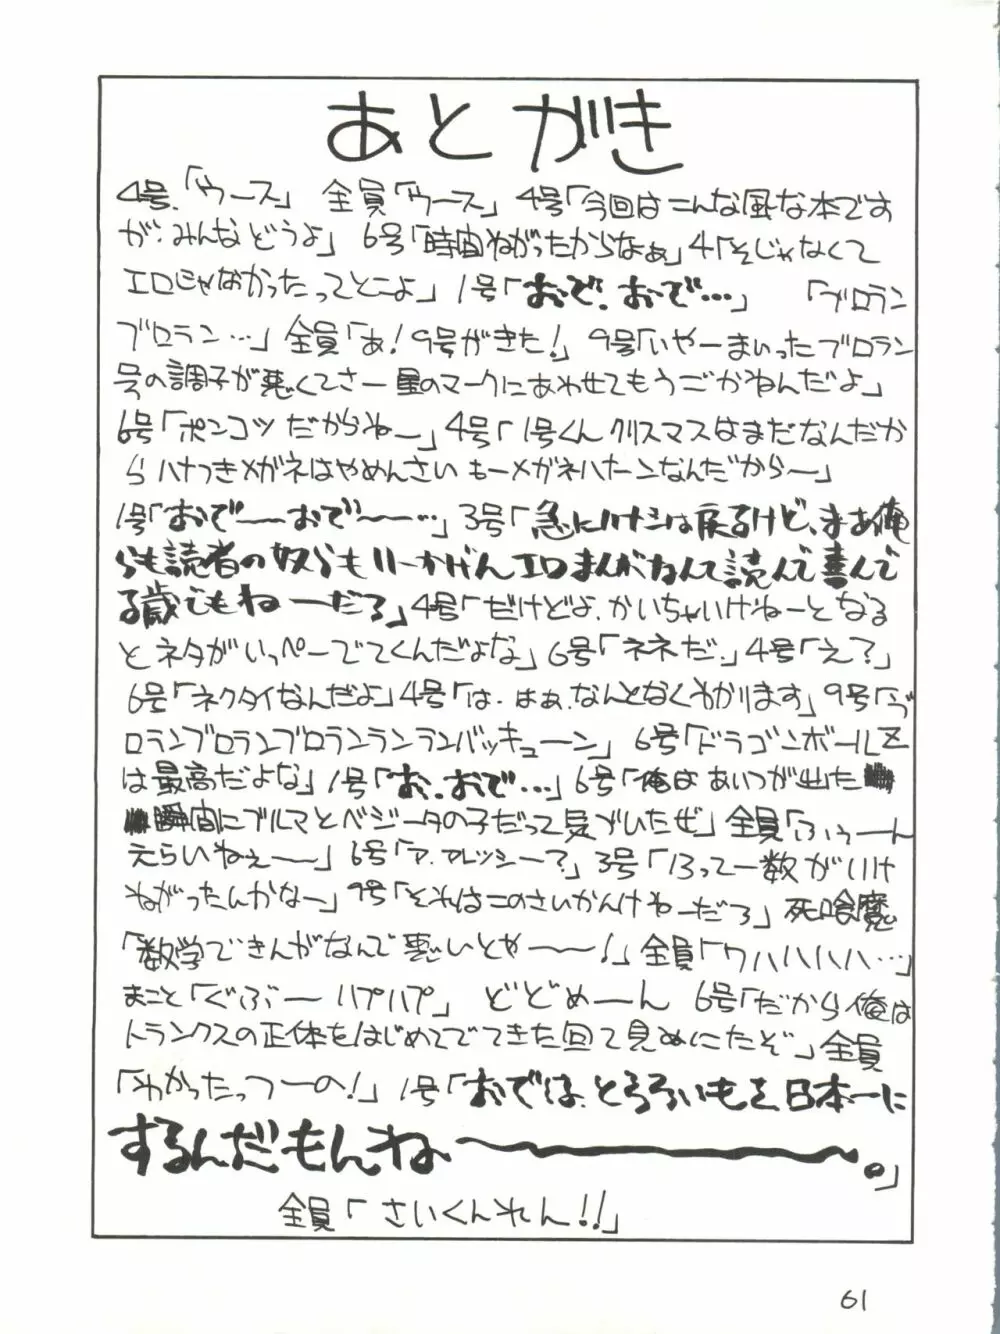 あとがき
4号.「ウース」 全員「ウース」 4号「今回はこんな風な本です
が.みんなどうよ」 6号「時間ねがったからなぁ」4「そじゃなくて
エロじゃなかったってとこよ」 1号「おで.おで…」 「ブロラン
ブロラン…」全員「あ!9号がきた!」 9号「いやーまいったブロラン
号の調子が悪くてさー星のマークにあわせてもうごかねんだよ」
6号「ポンコツだからねー」4号「1号くんクリスマスはまだなんだか
らハナつきメガネはやめんさい もーメガネハターンなんだから〜」
1号「おで――おで――…」3号「急にハナシは戻るけど、まあ俺
らも読者の奴らもいーかげんエロまんがなんて読んで喜んで
る歳でもねーだろ」4号「だけどよ.かいちゃいけねーとなる
とネタがいっぺーでてくんだよな」6号「ネネだ.」4号「え?」
6号「ネクタイなんだよ」4号「は.はぁ.なんとなくわかります」9号「ブ
ロランブロランブロランランランバッキューーン」 6号「ドラゴンボールZ
は最高だよな」1号「お.おで…」6号「俺はあいつが出た
瞬間にブルマとベジータの子だって気づいたぜ」全員「ふぅーん
えらいねぇ――」 6号「ア.アレッシー?」3号「13って一数がいけ
ねがったんかなー」 9号「それはこのさいかんけねーだろ」 死喰魔
「数学できんがなんで悪いとや――!」全員「ワハハハハハ…」
まこと「ぐぶー ハプハプ」 どどめーん 6号「だから俺は
トランクスの正体をはじめてでてきた回で見ぬいたぞ」全員
「わかったっつーの!」 1号「おでは.とろろいもを日本一に
するんだもんね――――。」
全員「さいくんれん!!」
61